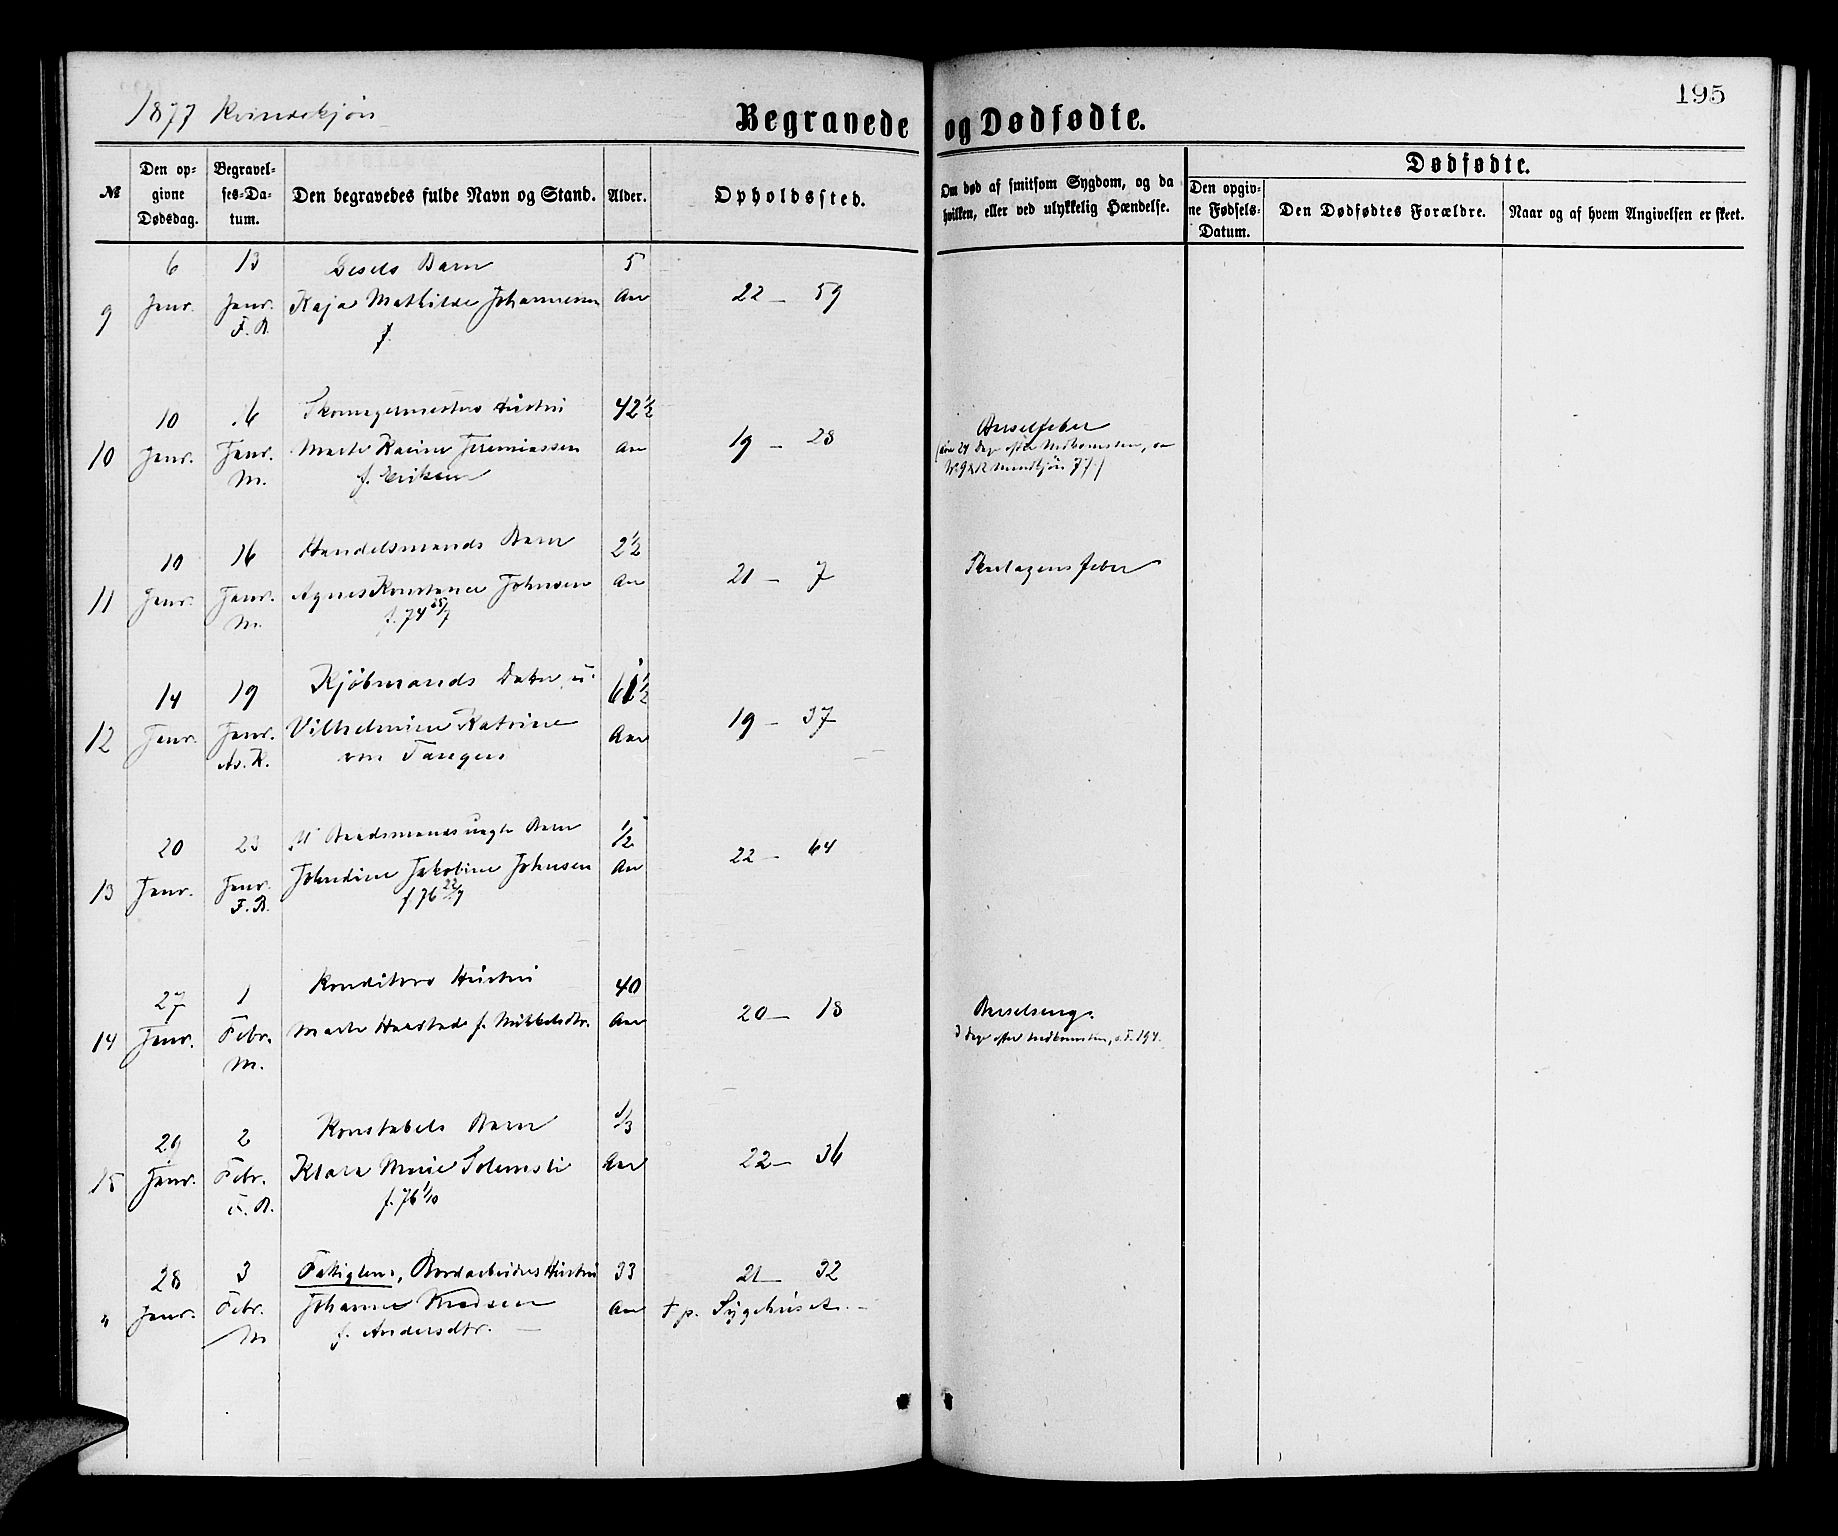 195
1877 Kvindekjøn
Begravede og Dødfødte.
№
Den opgivne Dødsdag.
Begravelses-Datum.
Den begravedes fulde Navn og Stand.
Alder.
Opholdssted.
Om død af smitsom Sygdom, og da hvilken, eller ved ulykkelig Hændelse.
Dødfødte.
Den opgivne Fødsels-Datum.
Den Dødfødtes Forældre.
Naar og af hvem Angivelsen er skeet.
6 13 Barn 5
9 Janr. Janr. Kaja Mathilde Johannesen Aar 22 – 59
F. B. f.
10 16 Skomagermesters Hustru 42½
10 Janr. Janr. Marte Karine Jeremiassen Aar 19 – 28 Barselfeber
M. f. Eriksen
24 Dage efter Nedkomsten,
10 16 Handelsmands Barn 2½
11 Janr. Janr. Agnes Konstance Johnsen Aar 21 – 7 Skarlagensfeber
M. f. 74 25/7
14 19 Kjøbmands Datter u.
12 Janr. Janr. Vilhelmine Katrine Aar 19 – 37
As. K. von Tangen
20 23 Baadsmands uægte Barn ½
13 Janr. Janr. Johndine Jakobine Johnsen Aar 22 – 64
F. B. f 76 22/7
27 1 Konditors Hustru 40
14 Janr. Febr. Marte Haastad f. Mikkelsdtr. Aar 20 – 18 Barselseng.
M. 3 Dage efter Nedkomsten, s. F. 194.
29 2 Konstabels Barn 1/3
15 Janr. Febr. Klara Marie Solemsli Aar 22 – 36
F. B. f. 76 1/10
28 3 Fattiglem, Bordarbeiders Hustru 33 21 – 32
" Janr. Febr. Johanne Knudsen Aar † p. Sygehuset. –
M f. Andersdtr. –